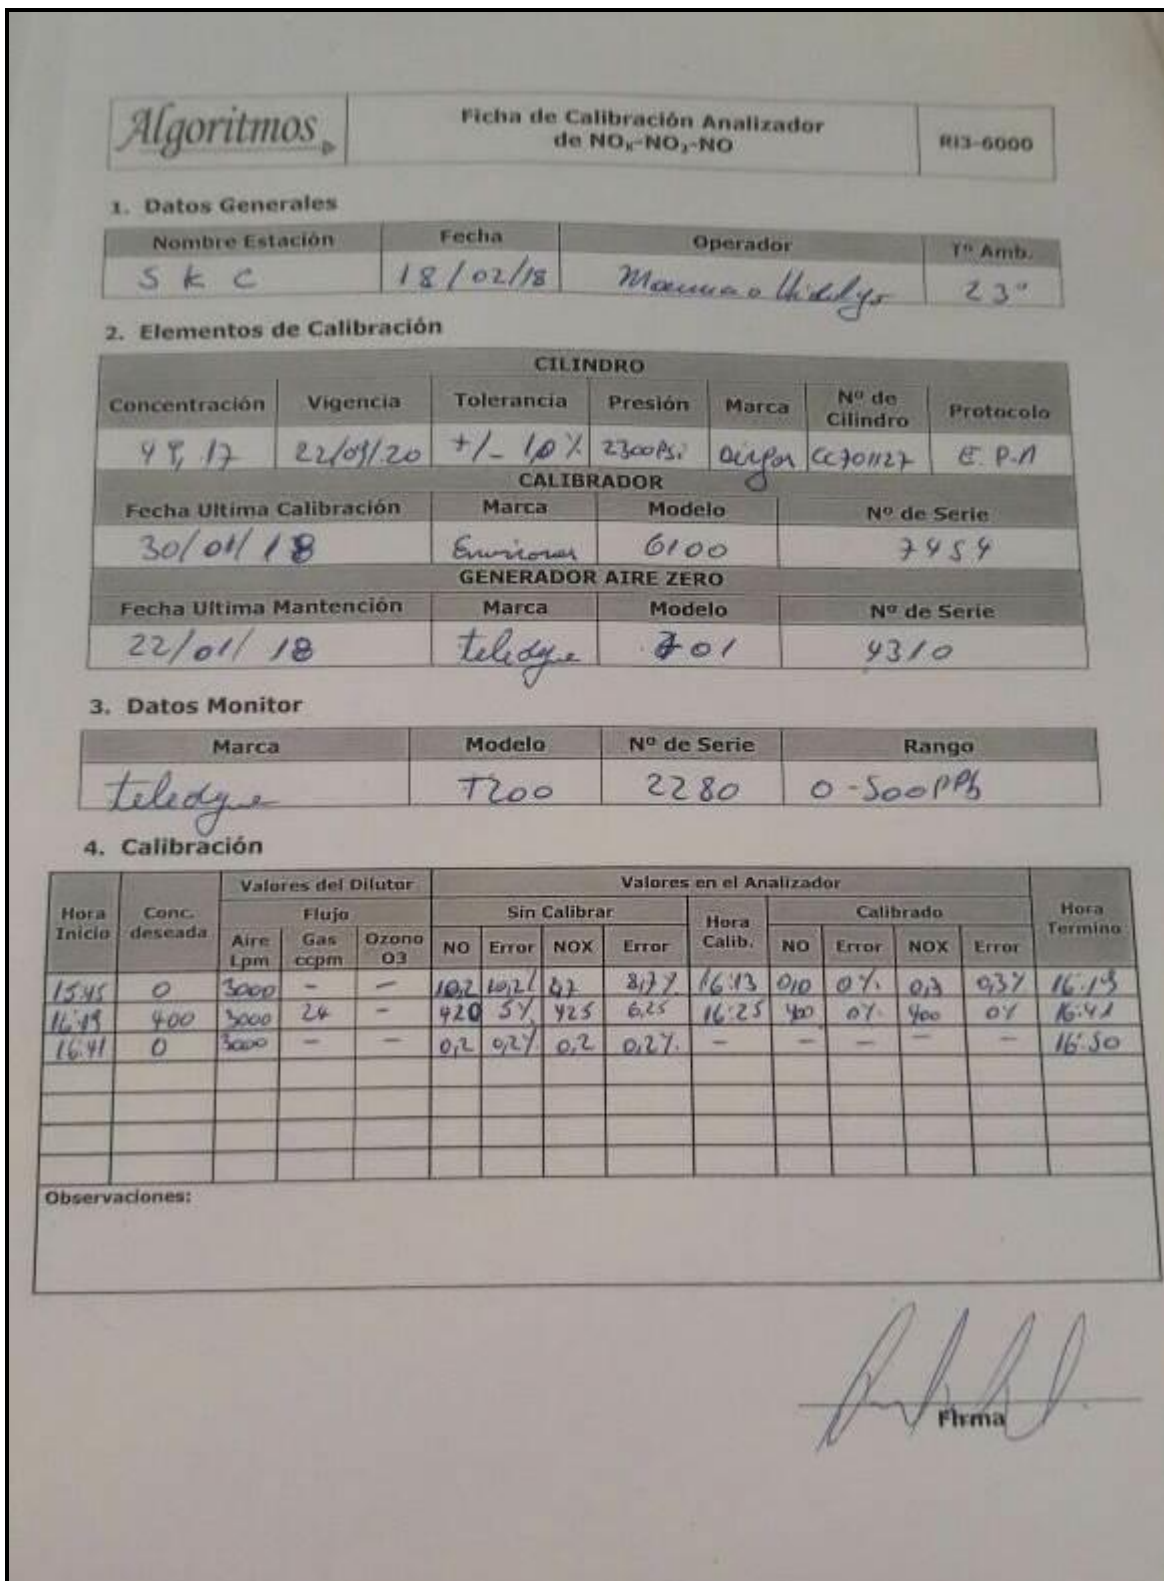 Algoritmos
Ficha de Calibración Analizador
de NOx-NO2-NO
RI3-6000
1. Datos Generales
Nombre Estación Fecha Operador Tº Amb.
S K C 18/02/18 23°
2. Elementos de Calibración
CILINDRO
Concentración Vigencia Tolerancia Presión Marca Nº de Cilindro Protocolo
22/01/20 +/- 1,0% 2300 Psi CC701127 E.P.A
CALIBRADOR
Fecha Ultima Calibración Marca Modelo Nº de Serie
30/01/18 6100 7454
GENERADOR AIRE ZERO
Fecha Ultima Mantención Marca Modelo Nº de Serie
22/01/18 teledyne 701 4310
3. Datos Monitor
Marca Modelo Nº de Serie Rango
teledyne T200 2280 0-500 PPb
4. Calibración
Valores del Dilutor Valores en el Analizador
Hora Inicio Conc. deseada Flujo Sin Calibrar Hora Calib. Calibrado Hora Termino
Aire Lpm Gas ccpm Ozono O3 NO Error NOX Error NO Error NOX Error
15:45 0 3000 - - 10,2 10,2% 8,7% 16:13 0,0 0% 0,3 0,3% 16:19
16:19 400 3000 24 - 420 5% 425 6,25 16:25 400 0% 400 0% 16:41
16:41 0 3000 - - 0,2 0,2% 0,2 0,2% - - - - - 16:50
Observaciones:
Firma